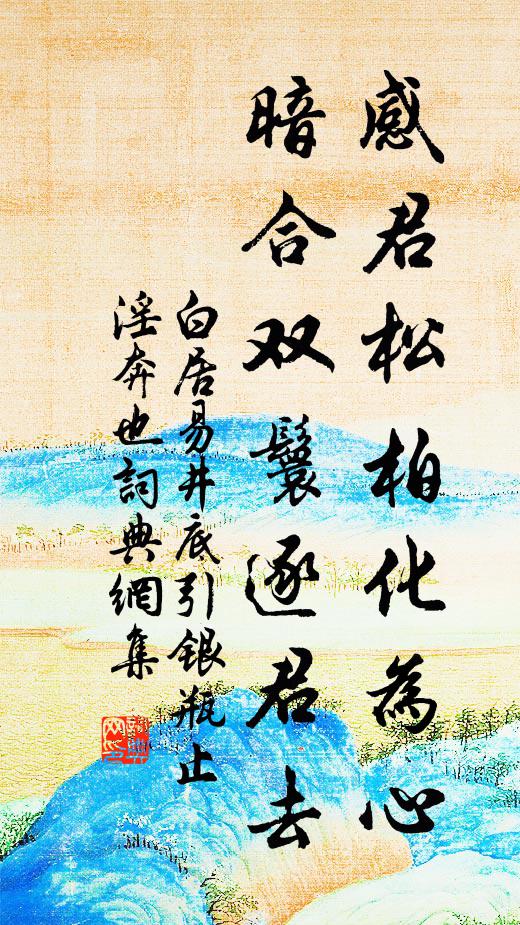 感君松柏化為心
暗合双鬟逐君去
白居易井底引銀瓶止
淫奔也詞典網集